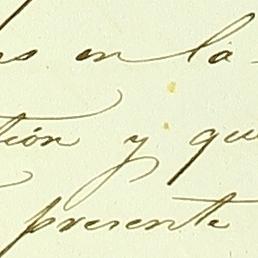 os en la
ción y que
presente